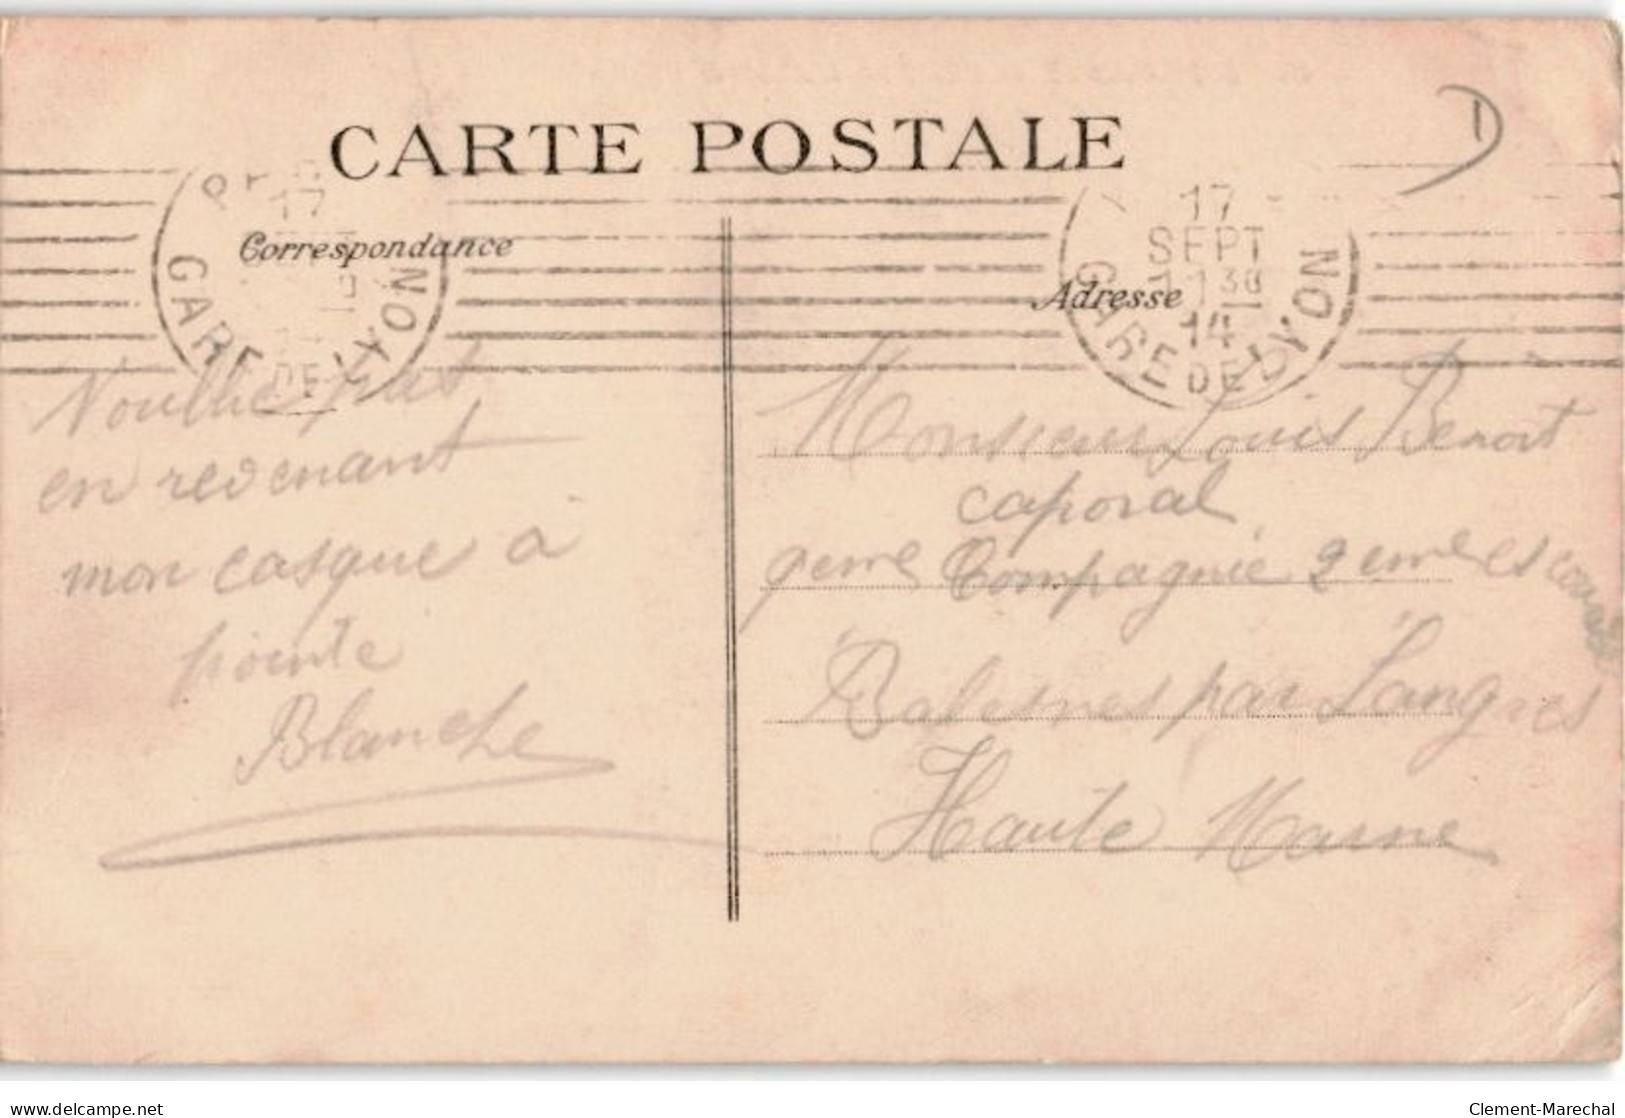 CARTE POSTALE
Correspondance
Adresse
17
GARE DE LYON
17
SEPT
1130
14
GARE DE LYON
N'oublie pas
en revenant
mon casque à
pointe
Blanche
Monsieur Louis Benoit
caporal
9eme Compagnie 2eme escouade
Balesmes par Langres
Haute Marne
www.delcampe.net
Clement-Marechal